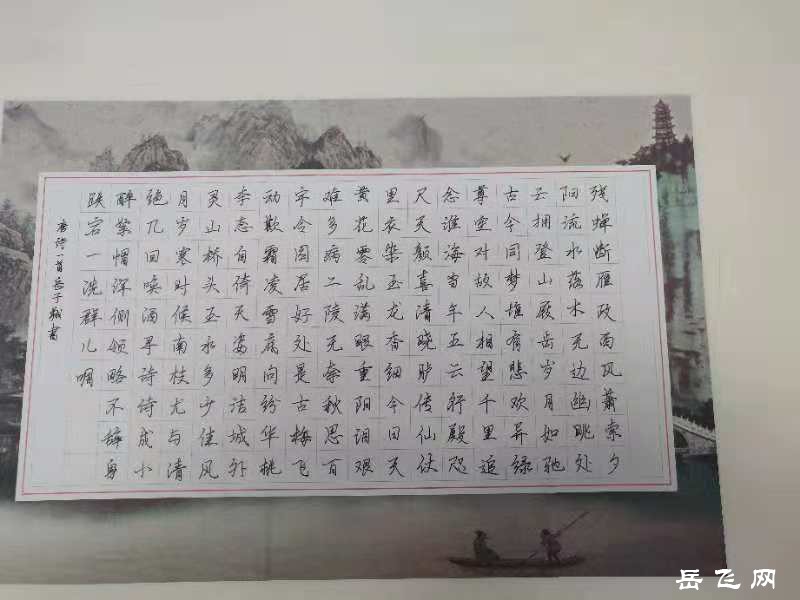 残蝉断雁政西风萧索夕
阳流水落木无边幽眺处
云拥登山屐岳岁月如驰
古今同梦惟有悲欢异绿
尊空对故人相望千里追
念谁海当年五云行殿咫
尺天颜喜清晓胪传仙仗
里衣染玉龙香细今日天
黄花零乱满眼重阳泪艰
难多病二陵无奈秋思百
字令园居好处是古梅飞
动欺霜凌雪底向纷华桃
李态自倚天姿明洁城外
灵山桥头玉水多少佳风
月岁寒时候南枝尤与清
绝几回唤酒寻诗诗成小
醉紫帽浑侧领略不辞身
跌宕一洗群儿啁
唐诗一首岳子书
岳飞网